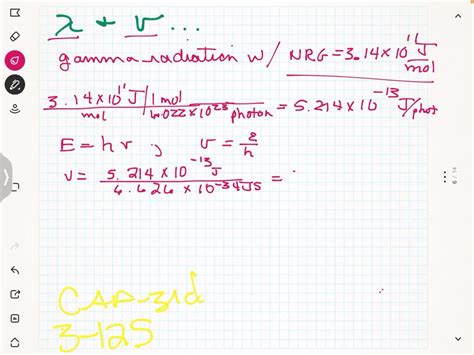 λ + ν ...
gamma radiation w/ NRG = 3.14 x 10^11 J/mol
3.14 x 10^11 J/mol | 1 mol/6.022 x 10^23 photon = 5.214 x 10^-13 J/phot
E = hν ; ν = E/h
ν = 5.214 x 10^-13 J / 6.626 x 10^-34 Js =
CAP-31d
3-125